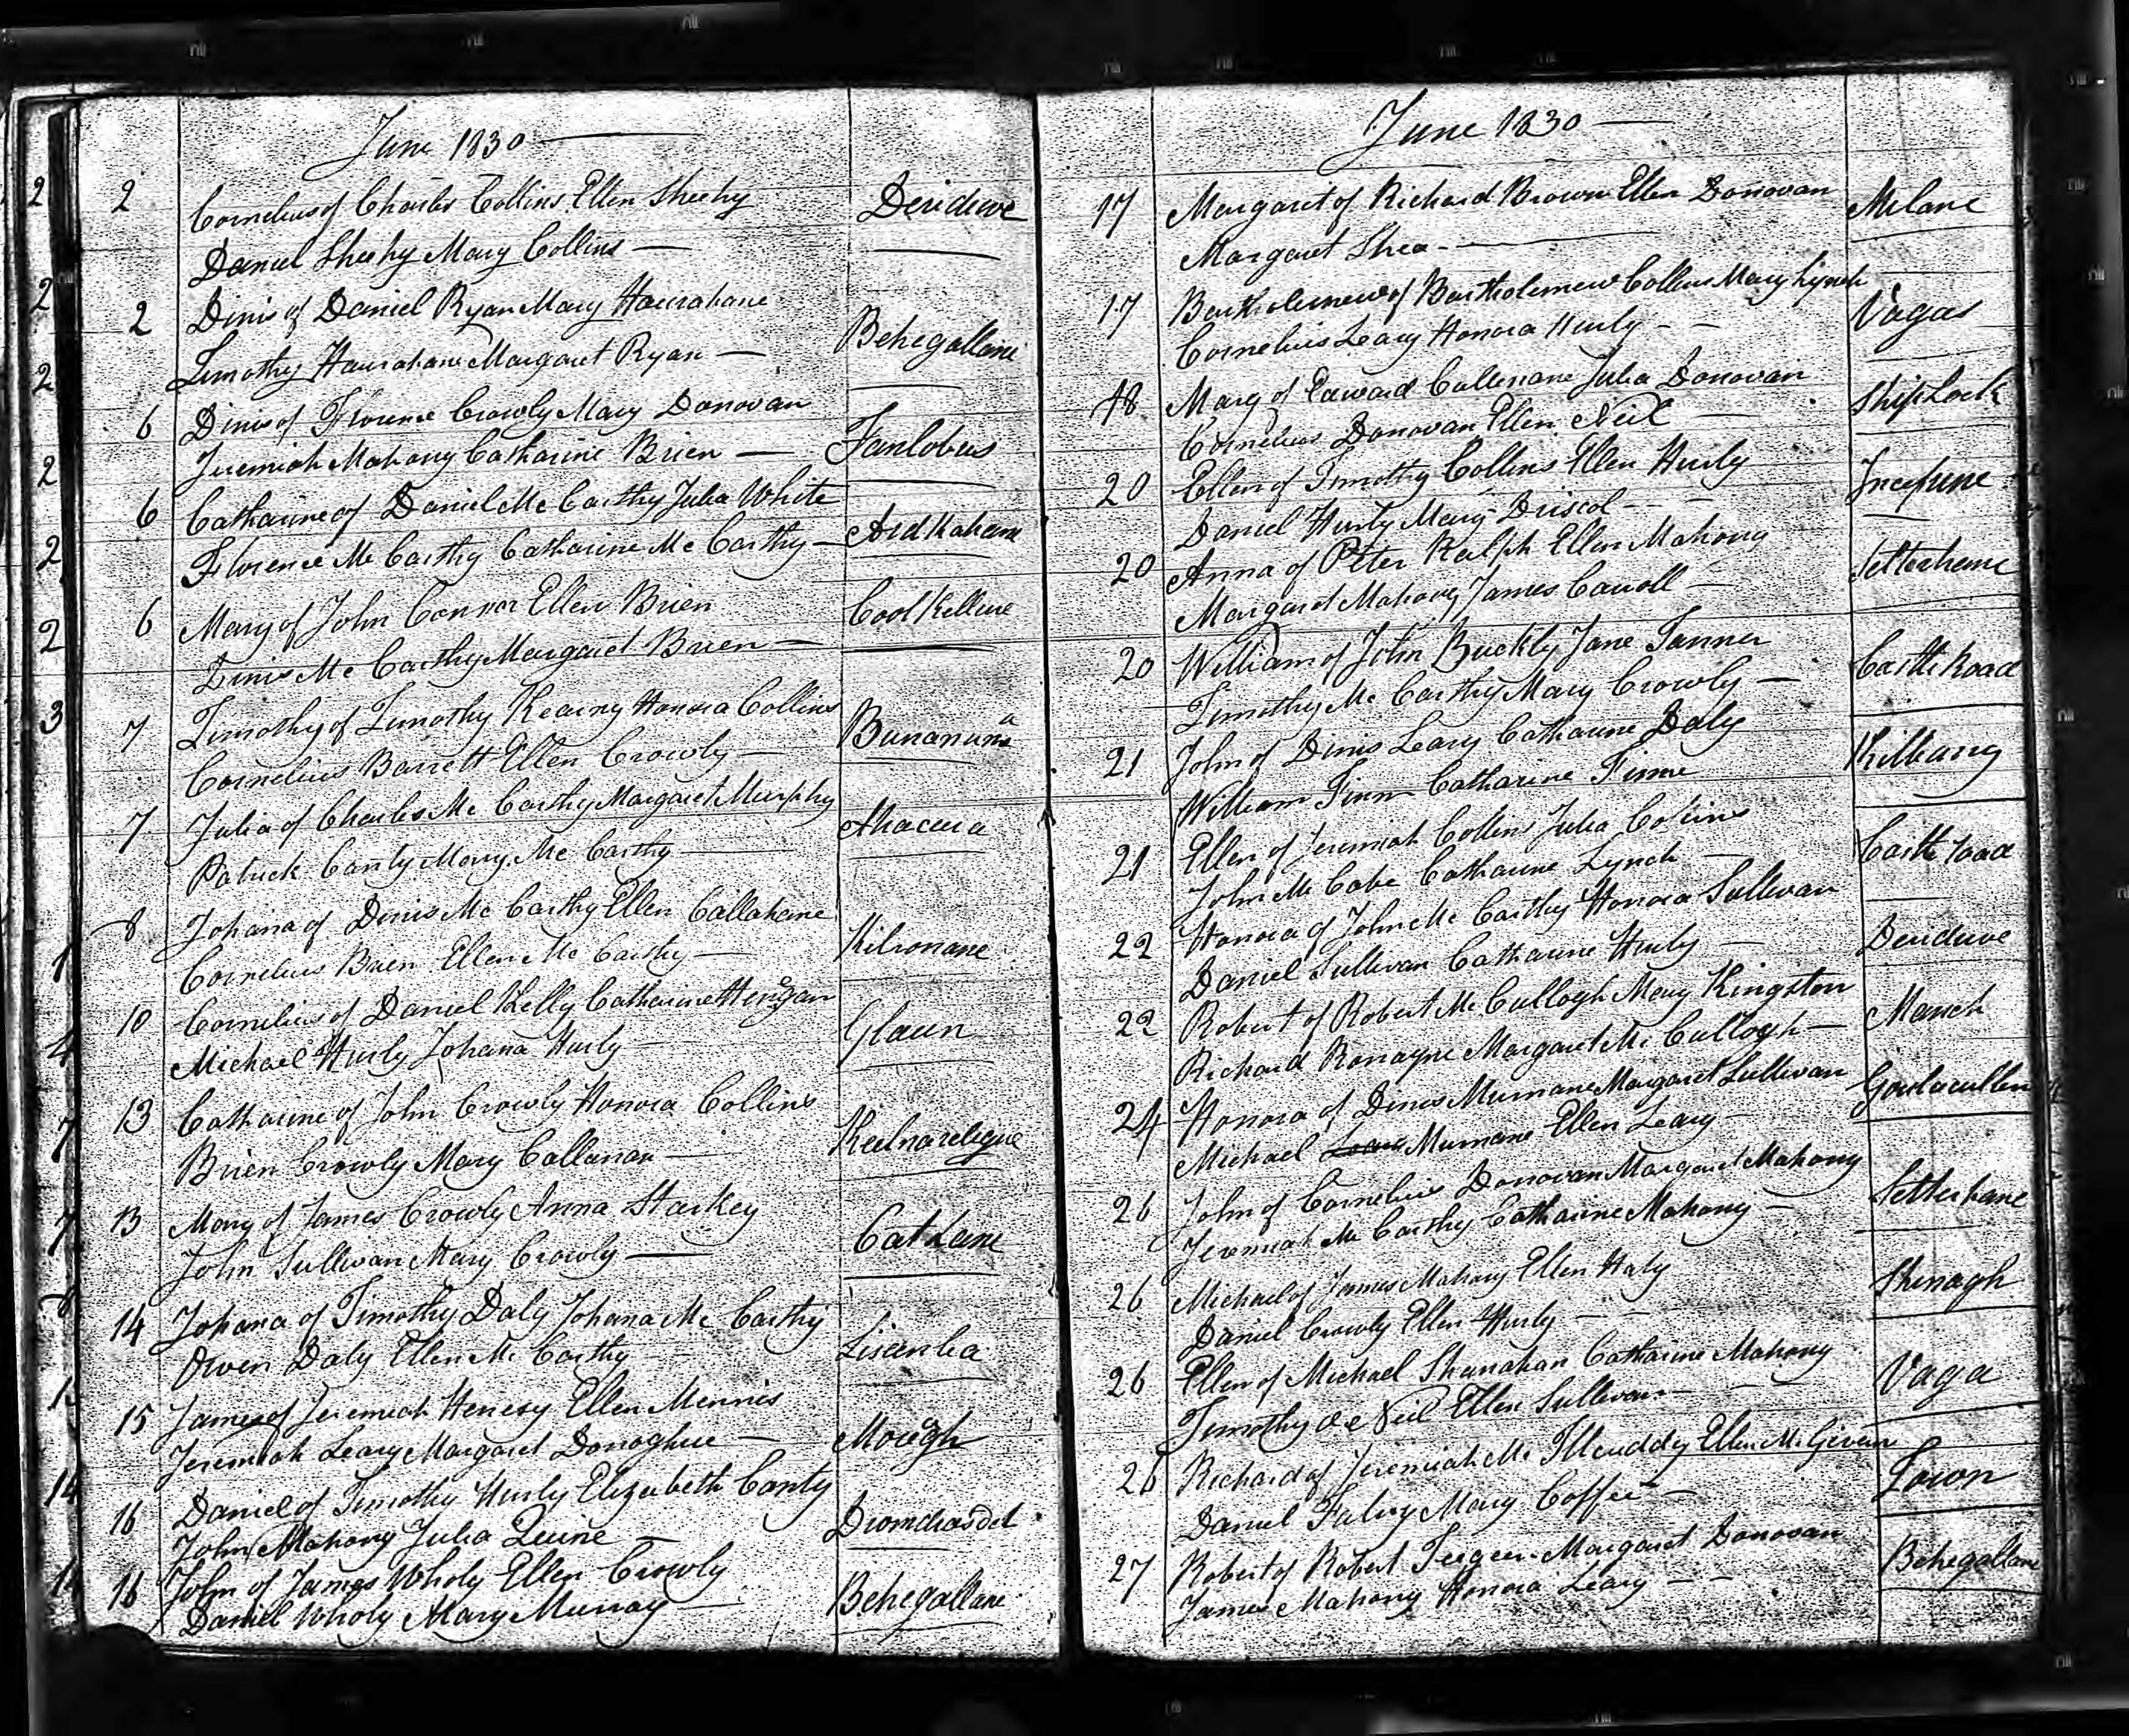 June 1830
2 Cornelius of Charles Collins Ellen Sheehy Deriduve
Daniel Sheehy Mary Collins
2 Dinis of Daniel Ryan Mary Hourahane Behegallane
Timothy Hourahane Margaret Ryan
6 Dinis of Florence Crowly Mary Donovan Fanlobus
Jeremiah Mahony Catharine Brien
6 Catharine of Daniel Mc Carthy Julia White ArdKahane
Florence Mc Carthy Catharine Mc Carthy
6 Mary of John Connor Ellen Brien CoolKellure
Dinis Mc Carthy Margaret Brien
7 Timothy of Timothy Kearny Honora Collins Bunanuma
Cornelius Barrett Ellen Crowly
7 Julia of Charles Mc Carthy Margaret Murphy Ahacura
Patrick Canty Mary Mc Carthy
8 Johana of Dinis Mc Carthy Ellen Callahane Kilronane
Cornelius Brien Ellen Mc Carthy
10 Cornelius of Daniel Kelly Catharine Hengan Glaun
Michael Hurly Johana Hurly
13 Catharine of John Crowly Honora Collins Keelnarelegue
Brien Crowly Mary Callanan
13 Mary of James Crowly Anna Starkey Cat Lane
John Sullivan Mary Crowly
14 Johana of Timothy Daly Johana Mc Carthy
Owen Daly Ellen Mc Carthy
15 James of Jeremiah Henesy Ellen Mennis Mough
Jeremiah Leary Margaret Donoghue
16 Daniel of Timothy Hurly Elizabeth Canty Dromdrasdil
John Mahony Julia Quine
16 John of James Wholy Ellen Crowly Behegallane
Daniel Wholy Mary Murray
June 1830
17 Margaret of Richard Brown Ellen Donovan Milane
Margaret Shea
17 Bartholemew of Bartholemew Collins Mary Lynch Vagas
Cornelius Leary Honora Hurly
18 Mary of Edward Cullenane Julia Donovan Ship Lock
Cornelius Donovan Ellen Neil
20 Ellen of Timothy Collins Ellen Hurly
Daniel Hurly Mary Driscol
20 Anna of Peter Ralph Ellen Mahony Letterhane
Margaret Mahony James Carroll
20 William of John Buckly Jane Tanner Castle Road
Timothy Mc Carthy Mary Crowly
21 John of Dinis Leary Catharine Daly Kilbarry
William Finn Catharine Finne
21 Ellen of Jeremiah Collins Julia Collins Castle road
John Mc Cabe Catharine Lynch
22 Honora of John Mc Carthy Honora Sullivan Deriduve
Daniel Sullivan Catharine Hurly
22 Robert of Robert Mc Cullogh Mary Kingston Manch
Richard Ronayne Margaret Mc Cullogh
24 Honora of Dinis Murnane Margaret Sullivan Gortacullen
Michael Leary Murnane Ellen Leary
26 John of Cornelius Donovan Margaret Mahony Letterhane
Jeremiah Mc Carthy Catharine Mahony
26 Michael of James Mahony Ellen Haly Shinagh
Daniel Crowly Ellen Hurly
26 Ellen of Michael Shanahan Catharine Mahony Vaga
Timothy oe Neil Ellen Sullivan
26 Richard of Jeremiah Mc Illcuddy Ellen Mc Givern Town
Daniel Falvy Mary Coffee
27 Robert of Robert Margaret Donovan Behegallane
James Mahony Honora Leary